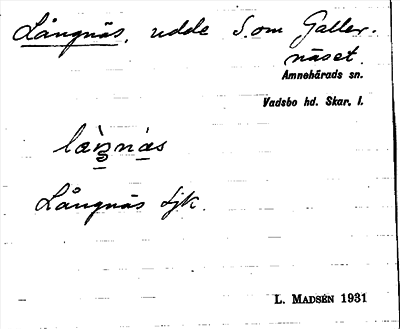 Långnäs, udde S. om Galler-
näset.
Amnehärads sn.
Vadsbo hd. Skar. l.
Långnäs Sjk.
L. MADSÉN 1931